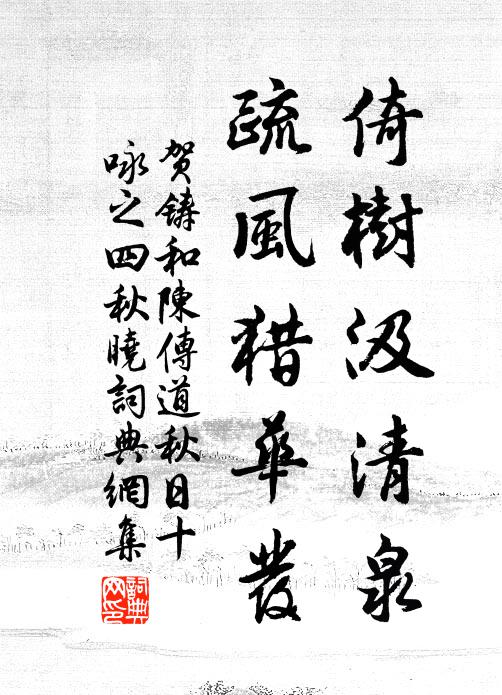 倚樹汲清泉
疏風猎華發
賀鑄和陳傳道秋日十
咏之四秋曉詞典網集
詞典网印